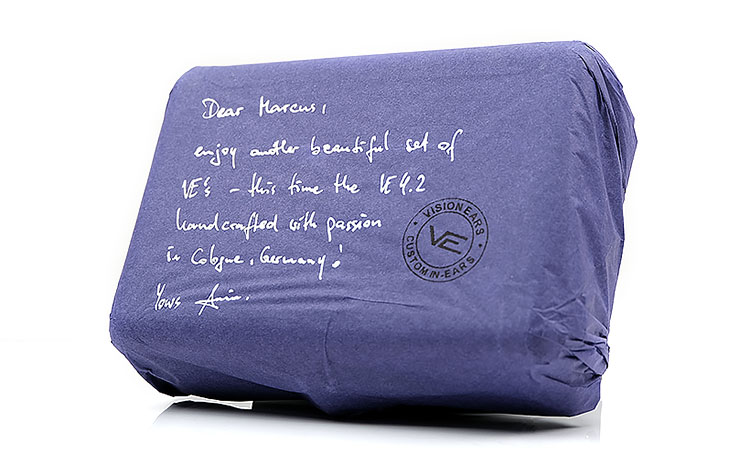 Dear Marcus,
enjoy another beautiful set of
VE's – this time the VE4.2
handcrafted with passion
in Cologne, Germany!
Yours
VISION EARS
VE
CUSTOM IN-EARS